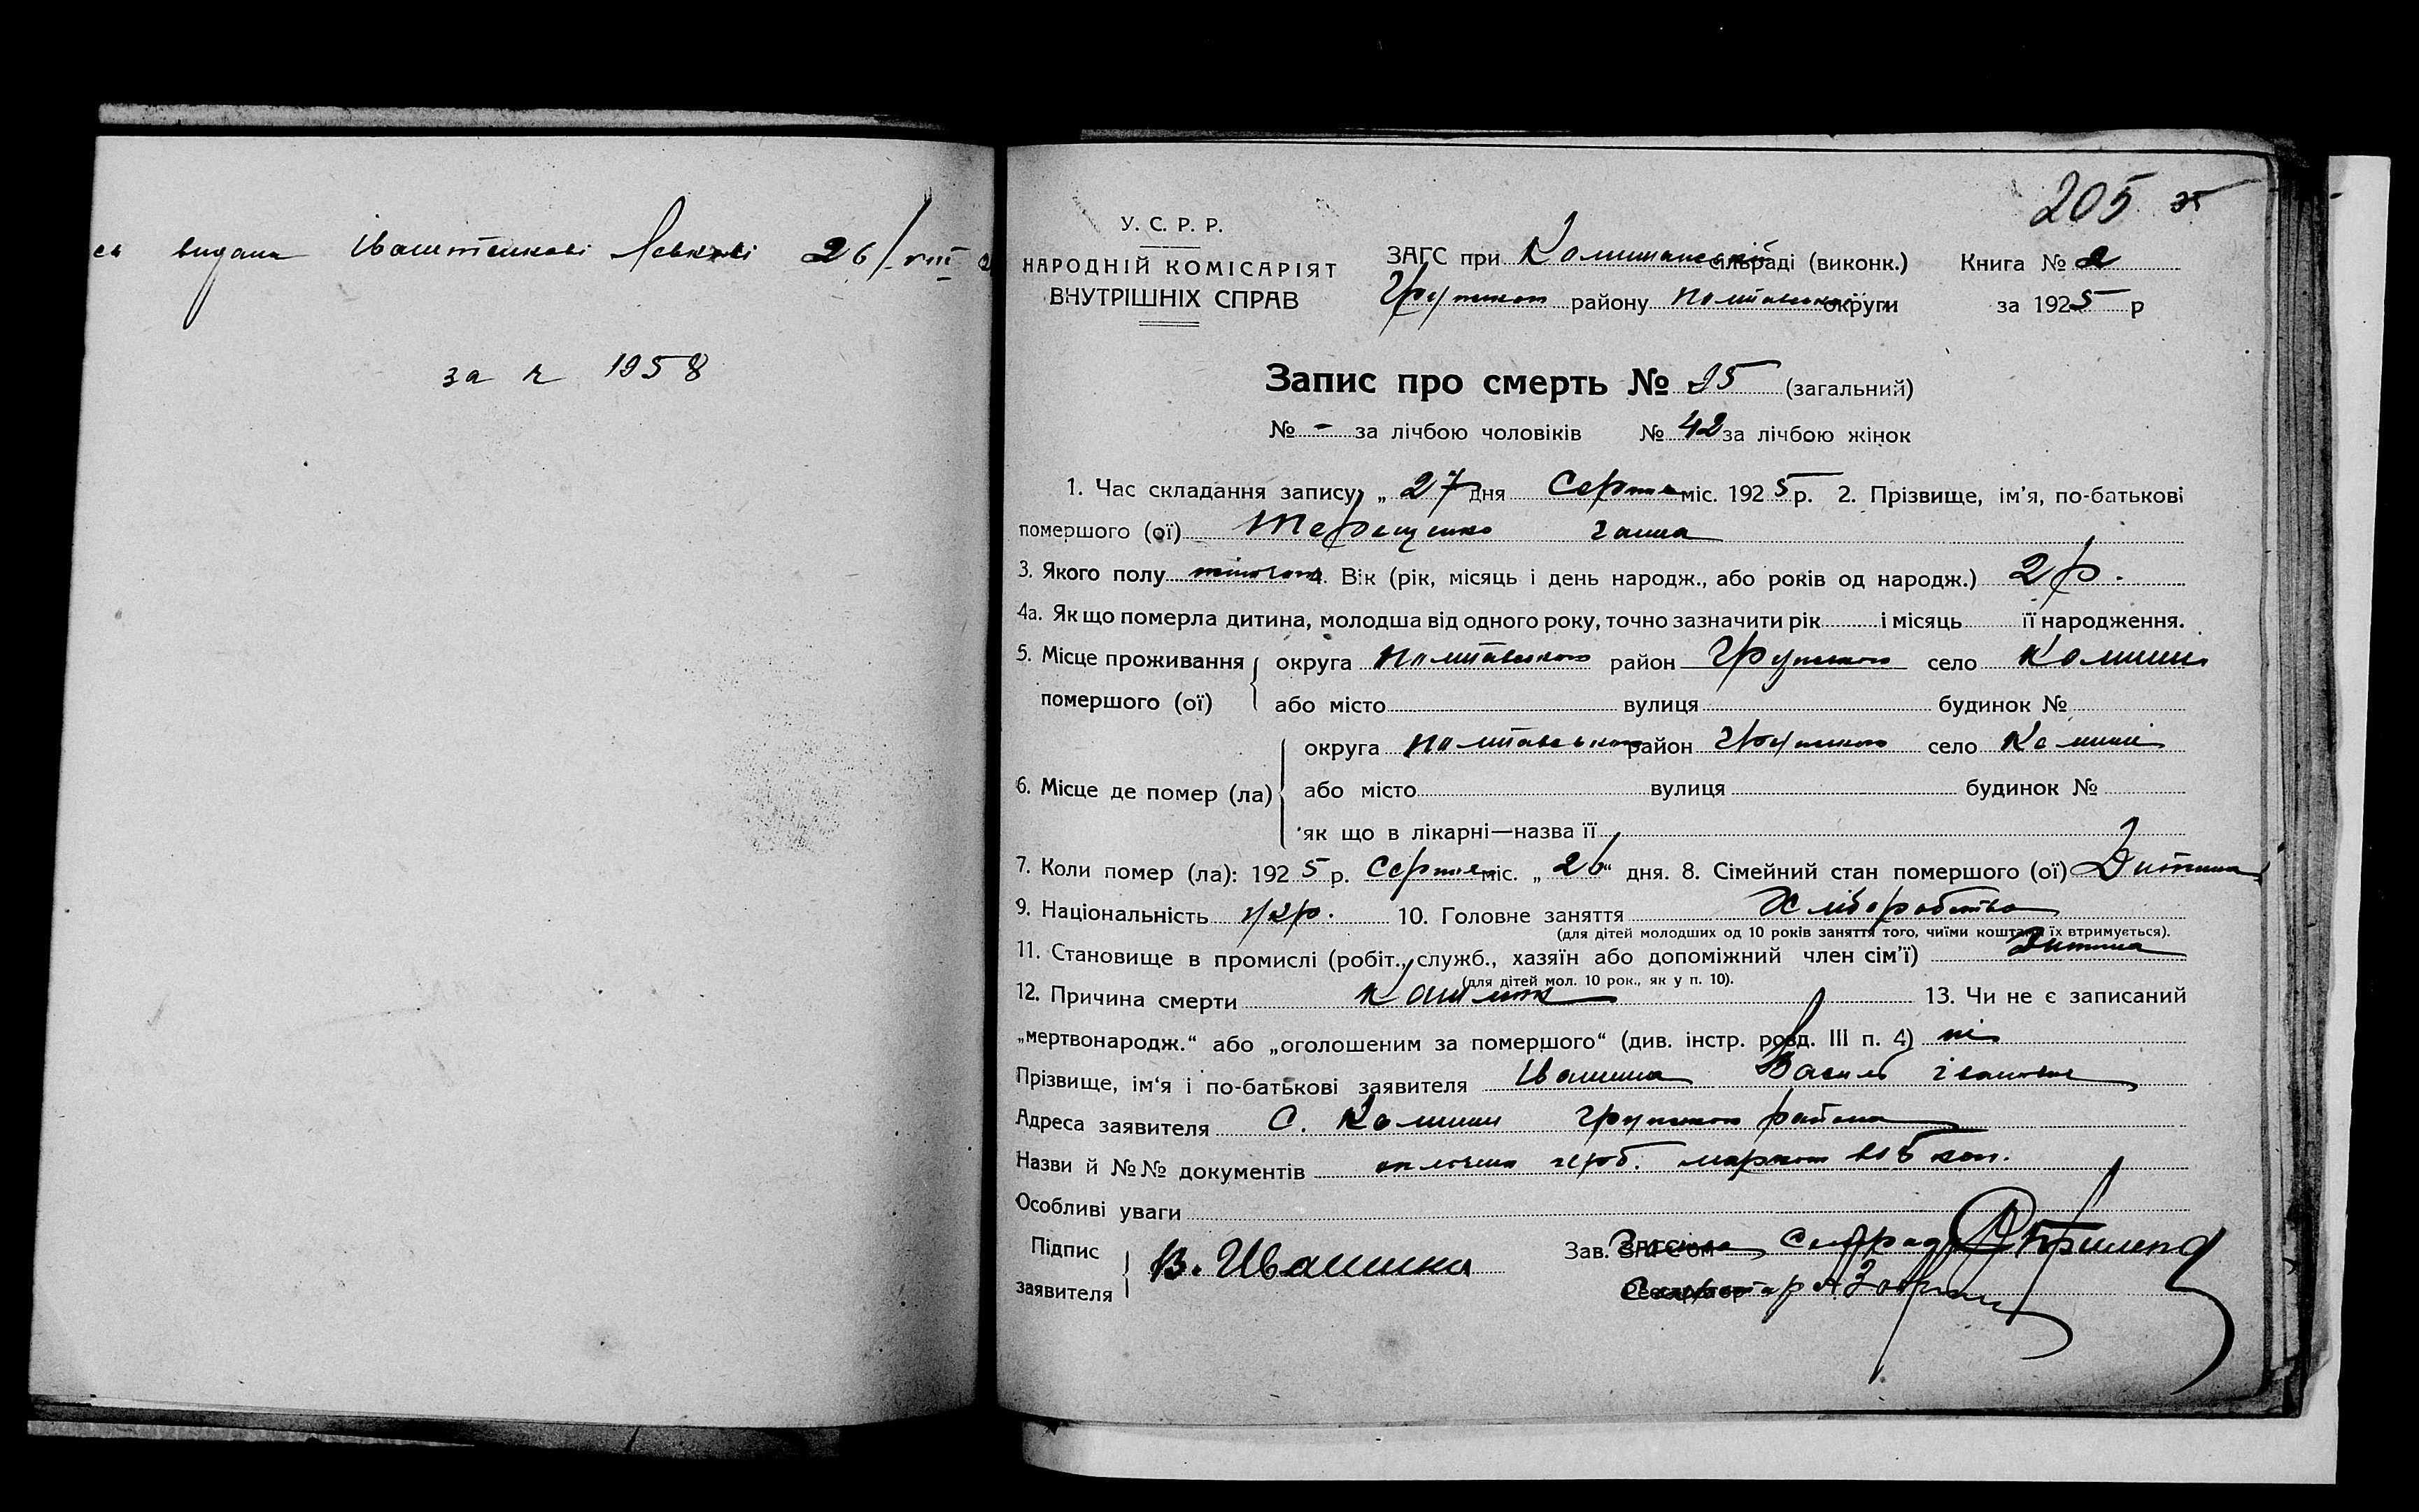 видана Іваштенкові Левкові 26/VIII
за № 1958
205
У. С. Р. Р.
НАРОДНІЙ КОМІСАРІЯТ
ВНУТРІШНІХ СПРАВ
ЗАГС при Комишанській сільраді (виконк.) Книга № 2
району Полтавської округи за 1925 р
Запис про смерть № 95 (загальний)
№ - за лічбою чоловіків № 42 за лічбою жінок
1. Час складання запису, „ 27 дня Серпня міс. 1925 р. 2. Прізвище, ім'я, по-батькові
помершого (ої) Терещенко Ганна
3. Якого полу жіночого 4. Вік (рік, місяць і день народж., або років од народж.) 2 р.
4а. Як що померла дитина, молодша від одного року, точно зазначити рік і місяць її народження.
5. Місце проживання помершого (ої) округа Полтавського район Грунського село Комиши
або місто вулиця будинок №
6. Місце де помер (ла) округа Полтавського район Грунського село Комиші
або місто вулиця будинок №
як що в лікарні—назва її
7. Коли помер (ла): 1925 р. Серпня міс. „ 26 “ дня. 8. Сімейний стан помершого (ої) Дитина
9. Національність укр. 10. Головне заняття Хліборобство
(для дітей молодших од 10 років заняття того, чиїми коштами їх втримується).
11. Становище в промислі (робіт., служб., хазяїн або допоміжний член сім'ї) Дитина
(для дітей мол. 10 рок., як у п. 10).
12. Причина смерти Кашлюк 13. Чи не є записаний
„мертвонародж.“ або „оголошеним за помершого“ (див. інстр. розд. III п. 4) ні
Прізвище, ім'я і по-батькові заявителя Ивашина Василь Іванович
Адреса заявителя С. Комиши Грунського района
Назви й №№ документів оплочено герб. маркою 5 коп.
Особливі уваги
Підпис заявителя В. Ивашина
Зав. ЗАГС'ом Голова Сільради
Секретар